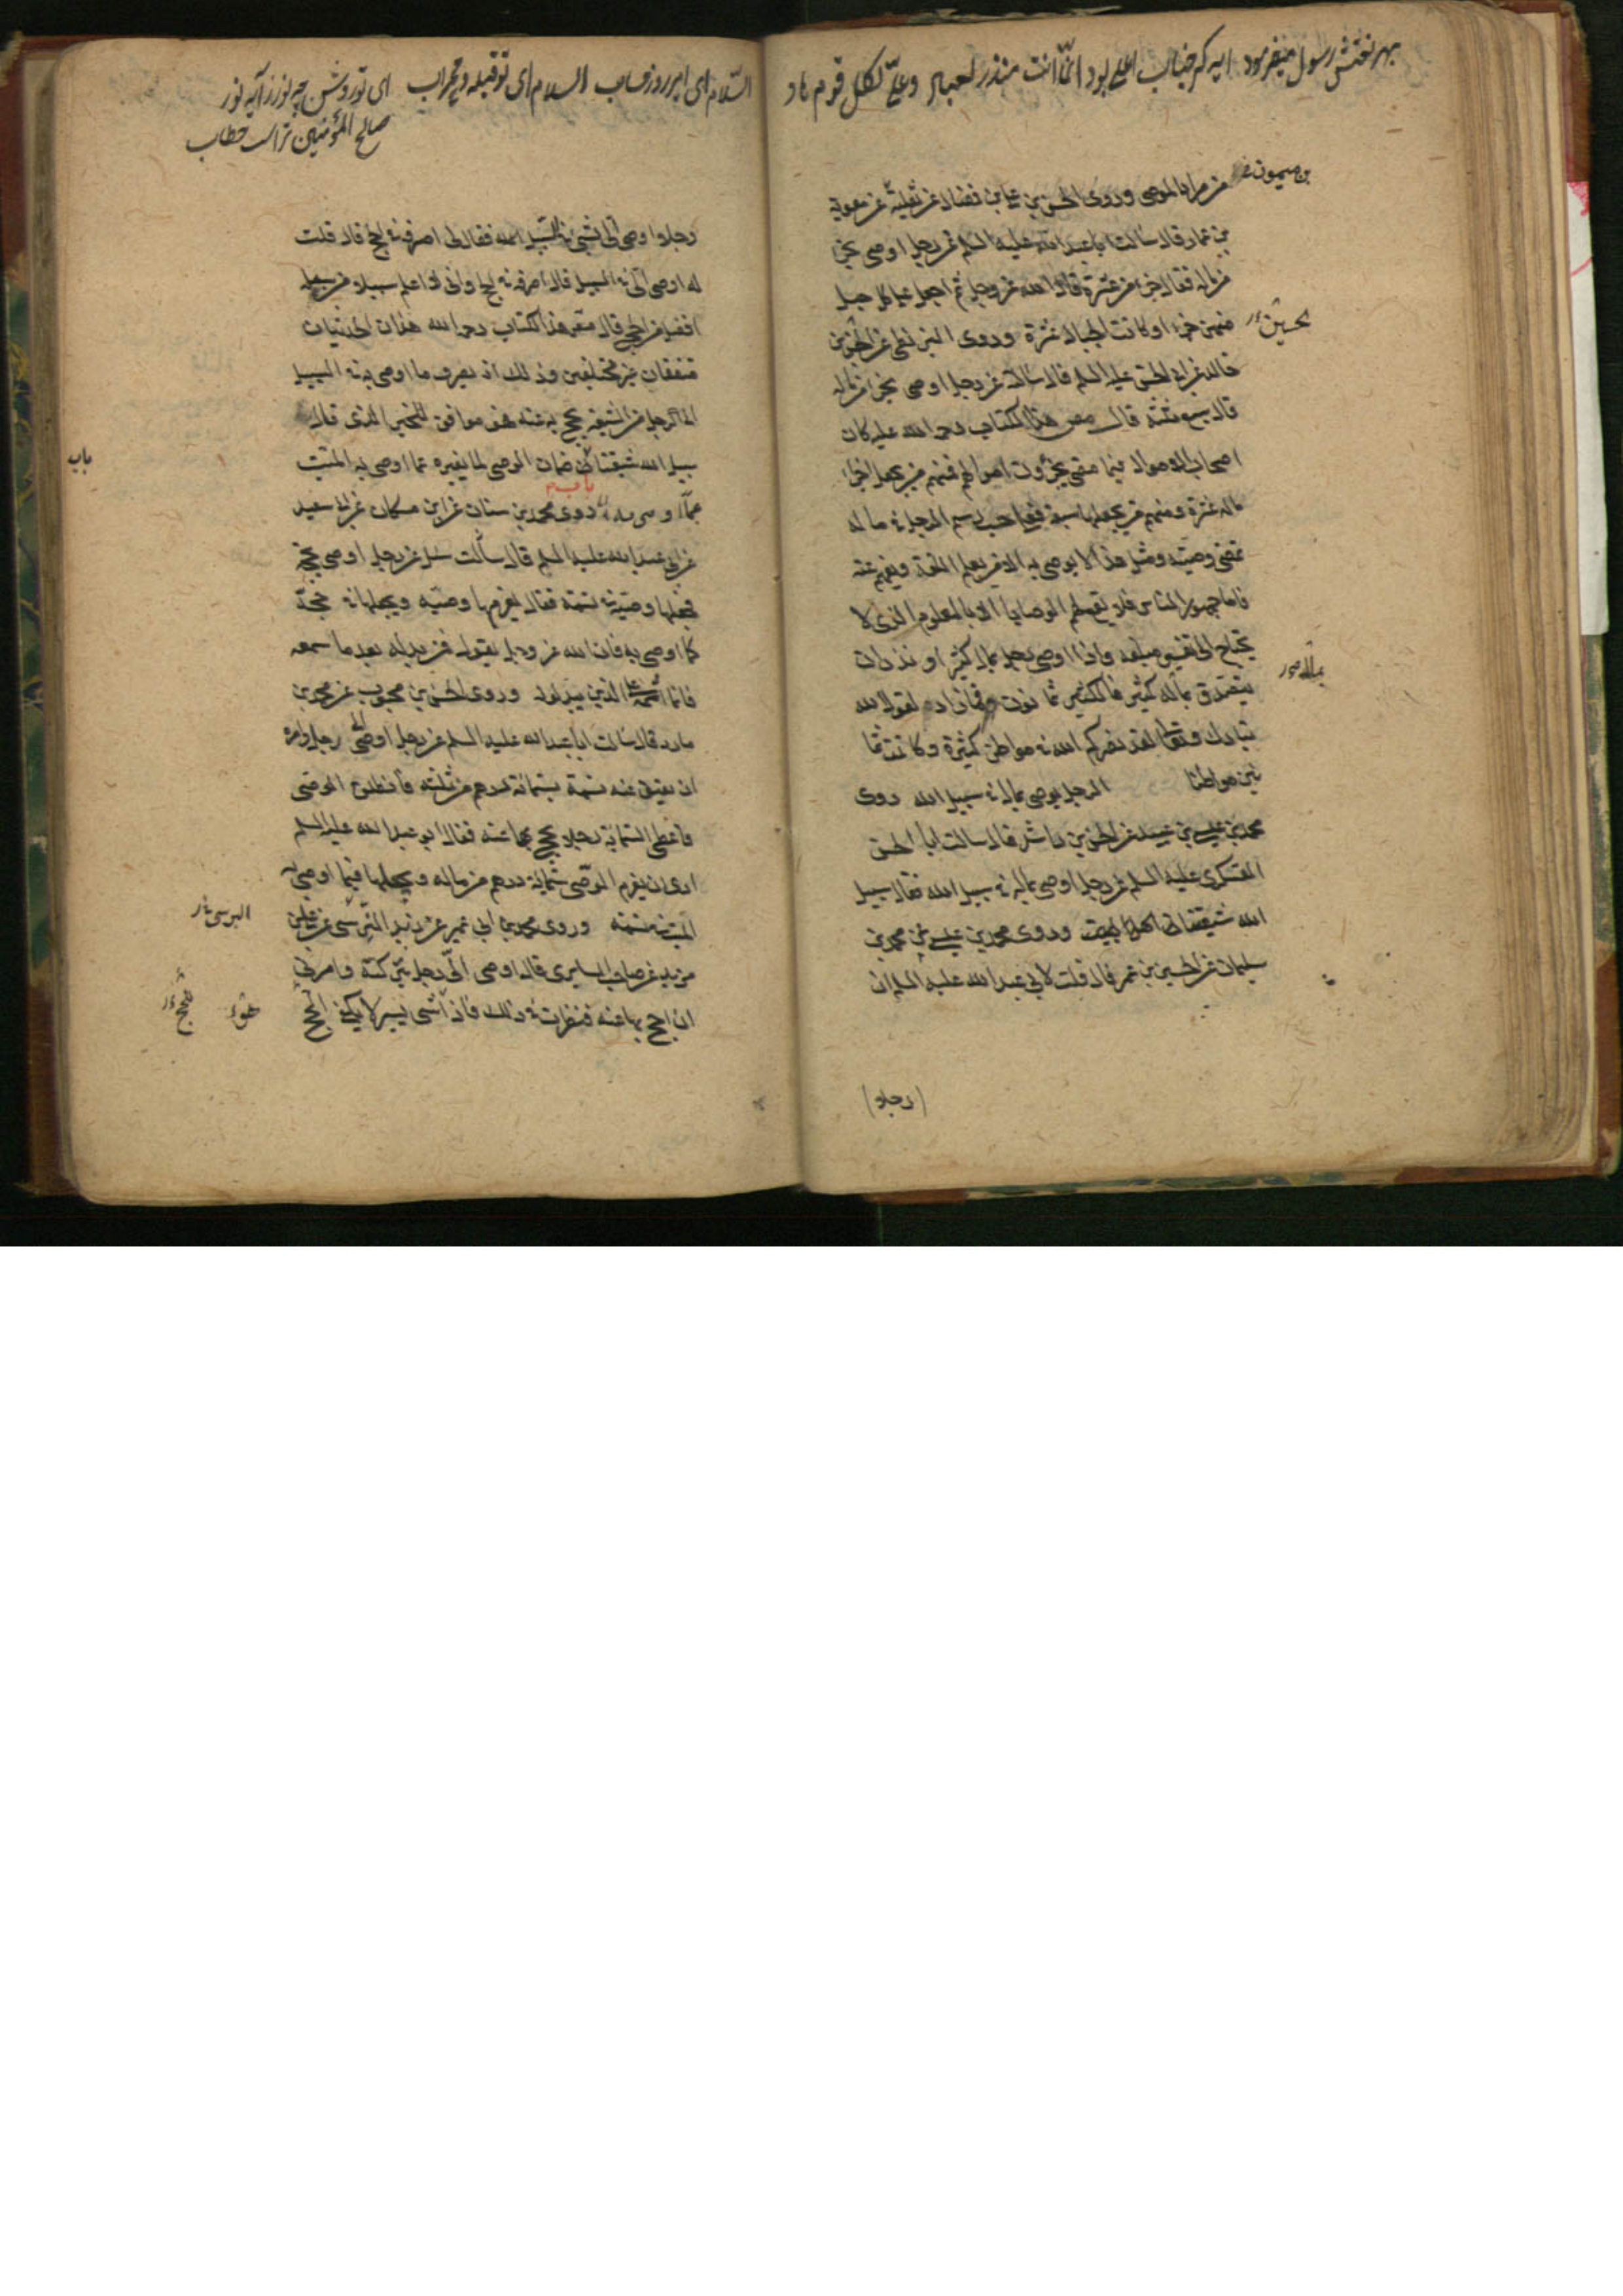 بهر نعتش رسول میفرمود ایه کر جناب اعلی بود انّما انت منذر لعباد وعلیّ لکل قوم هاد
بن میمون
من مرابا لموصی وروی الحسن بن علی بن فضال عن ثعلبة عن معویة
بن عمار قال سالت اباعبدالله علیه السلم عن رجل اوصی بجزء
من ماله فقال جزء من عشرة قال الله عز وجل ثم اجعل علی کل جبل
الحسین
منهن جزءا وکانت الجبال عشرة وروی البزنطی عن الحسین بن
خالد عن ابی الحسن علیه السلم قال سالته عن رجل اوصی بجزء من ماله
قال سبع ثلثه قال مصنف هذا الکتاب رحمه الله علیه کان
اصحاب الاموال فیما مضی یجزؤن اموالهم فمنهم من یجعل اجزاء
ماله عشرة ومنهم من یجعلها سبعة فعلی حسب رسم الرجل فی ماله
تمضی وصیته ومثل هذا لا یوصی به الا من یعلم اللغة ویفهم عنه
فاما جمهور الناس فلا تقع لهم الوصایا الا بالمعلوم الذی لا
یحتاج الی تفسیر مبلغه واذا اوصی رجل بمال کثیر او نذر ان
یتصدق بمال کثیر فالکثیر ثمانون وما زاد لقول الله
تبارک وتعالی لقد نصرکم الله فی مواطن کثیرة وکانت ثما
نین موطنا الرجل یوصی بمال فی سبیل الله روی
محمد بن عیسی بن عبید عن الحسن بن راشد قال سالت ابا الحسن
العسکری علیه السلم عن رجل اوصی بمال فی سبیل الله فقال سبیل
الله شیعتنا وروی محمد بن عیسی عن محمد بن
سلیمان عن الحسین بن عمر قال قلت لابی عبدالله علیه السلم ان
(رجلا)
السّلام ای امیر روز حساب السلام ای تو قبله و محراب ای تو روشن چه نور ز آیه نور
صالح المؤمنین تراست خطاب
رجلا اوصی الی بشیء فی سبیل الله فقال لی اصرفه فی الحج قال قلت
له اوصی الی فی السبیل قال اصرفه فی الحج وانی لا اعلم سبیلا من سبله
افضل من الحج قال مصنف هذا الکتاب رحمه الله هذان الحدیثان
متفقان غیر مختلفین وذلک انه یصرف ما اوصی به فی السبیل
الی رجل من الشیعة یحج به عنه فهو موافق للخبر الذی قال
باب
سبیل الله شیعتنا ضمان الوصی لما یغیره عما اوصی به المیت
باب
روی محمد بن سنان عن ابن مسکان عن ابی سعید
عن ابی عبدالله علیه السلم قال سالت سئل عن رجل اوصی بحجة
فجعلها وصیه فی نسمة فقال یغرمها وصیه ویجعلها فی حجة
کما اوصی به فان الله عز وجل یقول فمن بدله بعد ما سمعه
فانما اثمه علی الذین یبدلونه وروی الحسن بن محبوب عن محمد بن
مارد قال سالت اباعبدالله علیه السلم عن رجل اوصی الی رجل وامره
ان یعتق عنه نسمة بستمائة درهم من ثلثه فانطلق الوصی
فاعطی الستمائة رجلا یحج بها عنه فقال ابو عبد الله علیه السلم
اری ان یغرم الوصی ستمائة درهم من ماله ویجعلها فیما اوصی به
المیت فی نسمة وروی محمد بن ابی عمیر عن زید النرسی عن علی بن
مزید عن صاحب السابری قال اوصی الیّ رجل بترکته وامرنی
ان احج بها عنه فنظرت فی ذلک فاذا شیء یسیر لا یکفی الحج